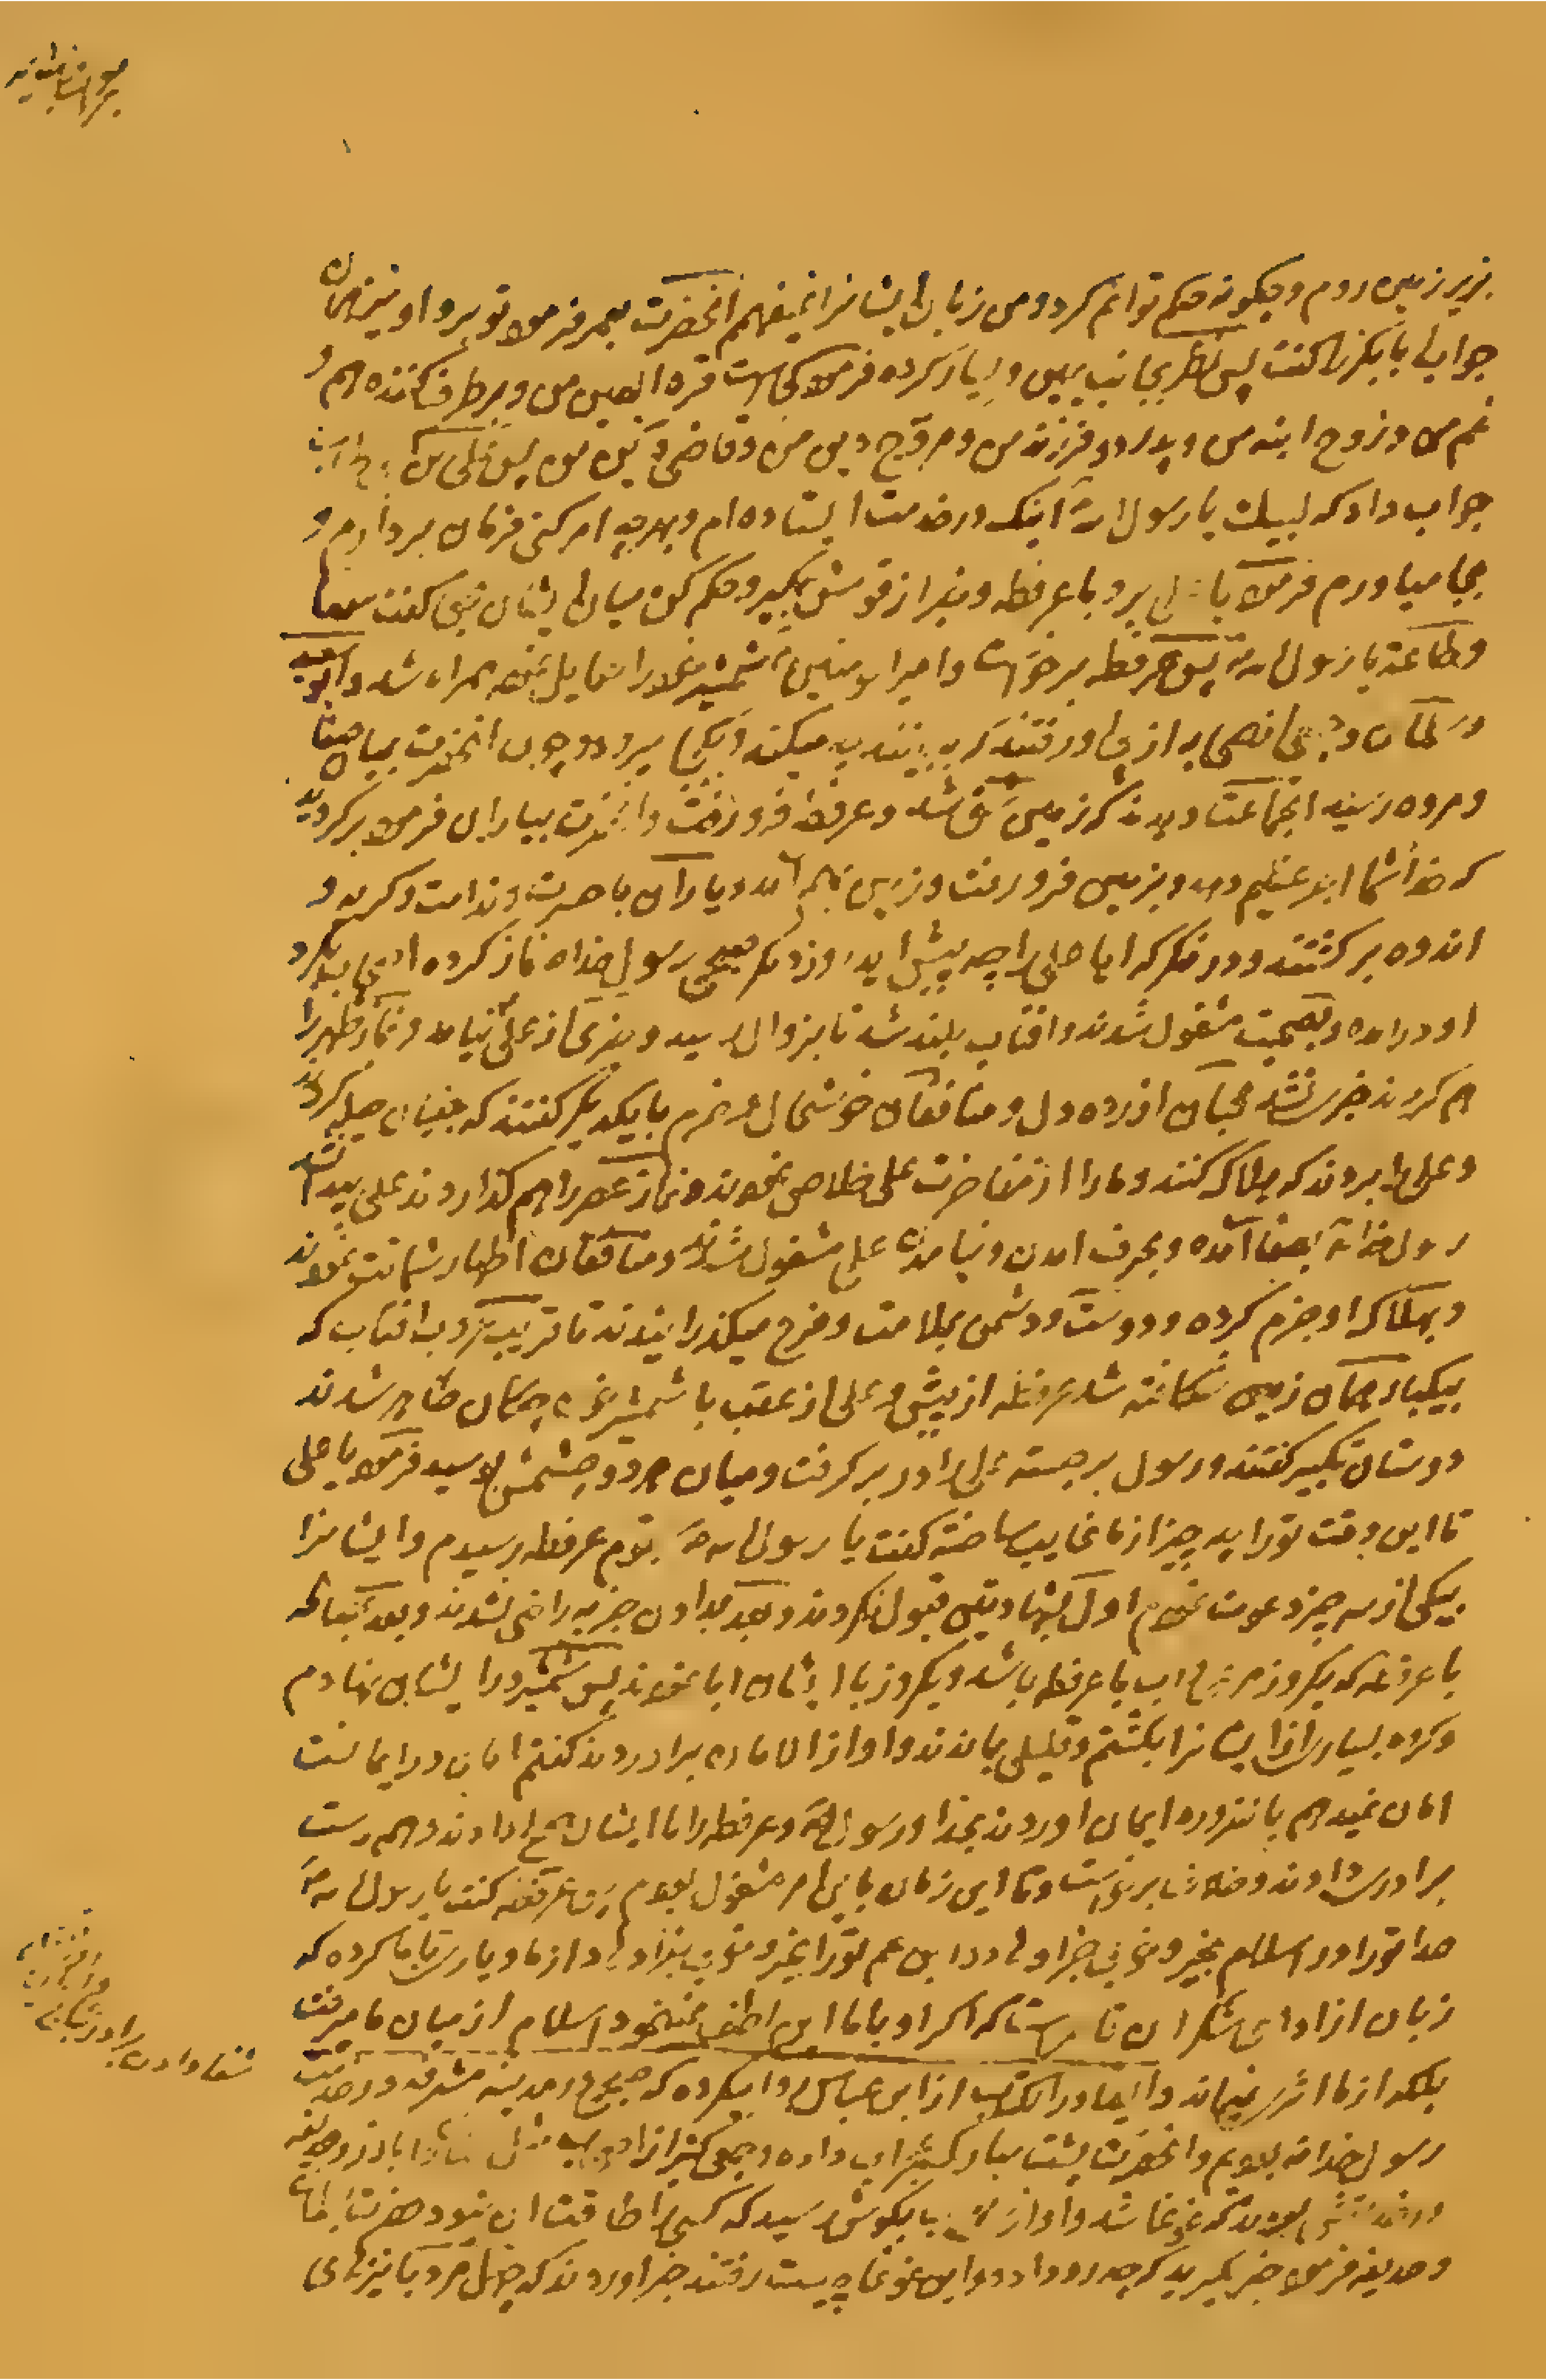 بزیر زمین روم و چکونه حکم توانم کرد و من زبان ایشانرا نمیفهم انحضرت بعمر فرمود تو برو او نیز همان
جواب ابابکر را کفت پس نظر بجانب یمین و یسار کرده فرمود کجاست قرة العین من و برطرف کننده هم و
غم من و زوج ابنه من و پدر دو فرزند من و مروج دین من و قاضی دین من پس علی
جواب داد که لبیک یا رسول الله اینک در خدمت ایستاده ام و بهرچه امر کنی فرمان بردارم و
بجا میاورم فرمود یا علی برو با عرفطه و خبر از قومش بکیر و حکم کن میان ایشان بحق کفت سمعا
و طاعة یا رسول الله پس عرفطه برخواست و امیرالمومنین شمشیر خود را حمایل نموده همراه شد و ابو سعید
و سلمان و جمعی اصحاب از پی او رفتند که ببینند چه میکند و بکجا میرود و چون انحضرت بمیان صفا
و مروه رسید انجماعت دیدند که زمین شق شد و عرفطه فرو رفت و انحضرت بیاران فرمود برکردید
که خدا شما را اجر عظیم دهد و بزمین فرو رفت و زمین بهم آمد و یاران با حسرت و ندامت و کریه و
اندوه برکشتند و در فکر که ایا علی را چه پیش اید روز دیکر صبحی رسول خدا نماز کرده اصحاب بکرد
او درامده و بصحبت مشغول شدند و افتاب بلند شد تا بزوال رسید و خبری از علی نیامد و نماز ظهر را
هم کردند خبر نشد محبان ازرده دل و منافقان خوشحال و خرم بایکدیکر کفتند که جنیان حیله کردند
و علی را بردند که هلاک کنند و ما را از مفاخرت علی خلاصی نمودند و نماز عصر را هم کذاردند علی پیدا نشد
رسول خدا بصفا آمده و بحرف امدن و نیامدن علی مشغول شدند و منافقان اظهار شماتت نمودند
و بهلاک او جزم کرده و دوست و دشمن بملامت و فرح میکذرانیدند تا قریب بغروب افتاب که
بیکبار همان زمین شکافته شد عرفطه از پیش و علی از عقب با شمشیر خون چکان ظاهر شدند
دوستان تکبیر کفتند و رسول برجسته علی را در بر کرفت و میان هر دو چشمش بوسید فرمود یا علی
تا این وقت تو را چه چیز از ما غایب ساخته کفت یا رسول الله بقوم عرفطه رسیدم و ایشانرا
بیکی از سه چیز دعوت نمودم اول بشهادتین قبول نکردند و بعد بدادن جزیه راضی نشدند و بعد بمصالحه
با عرفطه که یکروز مرعی و اب با عرفطه باشد و یکروز با ایشان ابا نمودند پس شمشیر در ایشان نهادم
و کروه بسیاری از ایشانرا بکشتم و قلیلی بماندند و اواز الامان براوردند کفتم امان در ایمانست
امان نمیدهم تا نیاورده ایمان اوردند بخدا و رسول الله و عرفطه را با ایشان صلح دادند و همه دست
برادری دادند و خلاف برخواست و تا این زمان باین امر مشغول بودم پس عرفطه کفت یا رسول الله
خدا تو را در اسلام بخیر و خوبی جزا دهد و ابن عم تو را بخیر و خوبی جزا دهد از ما و یاری با ما کرده که
زبان از ادای شکر ان قاصر است که اکر او با ما این لطف نمینمود اسلام از میان ما میرفت
بلکه از ما اثری نمیماند و ایضا در الکتاب از ابن عباس روایت کرده که صبحی در مدینه مشرفه در خدمت
رسول خدا بودیم و انحضرت پشت مبارک بمحراب داده و جمعی کثیر از اصحاب مثل ابا ذر و حذیفه
در خدمتش بودند که غوغا شد و اواز بکوش رسید که کسی را طاقت ان نبود حضرت بسلمان
و حذیفه فرمود خبر بکیرید که چه رو داده و این غوغا چیست رفتند خبر اوردند که چهل مرد با نیزهای
شفا دادن برادر